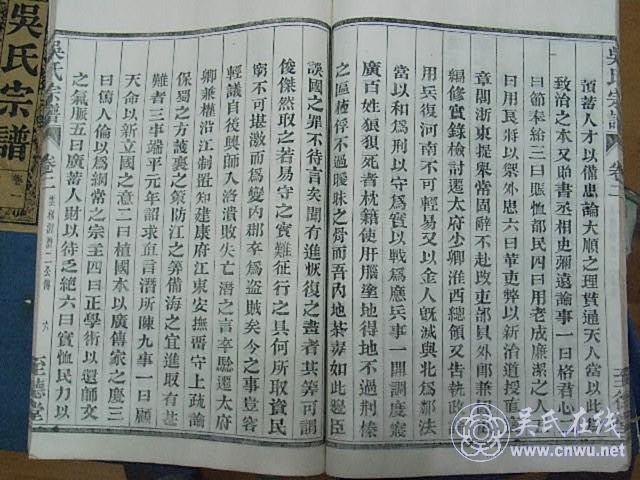 預蓄人才以備患論大順之理貫通天人當以此
致治之本又貽書丞相史彌遠論事一曰格君心
曰節奉給三曰賑恤都民四曰用老成廉潔之人
曰用良將以禦外患六曰革吏弊以新治道授直
章閣浙東提舉常固辭不赴改吏部員外郎兼
編修實錄檢討遷太府少卿淮西總領又告執政
用兵復河南不可輕易又以金人既滅與北為鄰法
當以和為形以守為實以戰為應兵事一開調度寔
廣百姓狼狽死者枕籍使肝腦塗地得地不過荊榛
之區獲俘不過曖昧之骨而吾內地荼毒如此邊臣
誤國之罪不待言矣聞有進恢復之畫者其筭可謂
俊傑然取之若易守之實難征行之具何所取資民
窮不可堪激而為變內郡率為盜賊矣今之事豈容
輕議自後興師入洛潰敗失亡潛之言率驗遷太府
卿兼權沿江制置知建康府江東安撫留守上疏論
保蜀之方護襄之策防江之筭備海之宜進取有甚
難者三事端平元年詔求直言潛所陳九事一曰顧
天命以新立國之意二曰植國本以廣傳家之慶三
曰篤人倫以為綱常之宗主四曰正學術以還師文
之氣脈五曰廣蓄人財以待乏絕六曰實恤民力以
吳氏宗譜 卷二 六 至德堂
吳氏宗譜 卷二
吳氏宗譜
吴氏在线
www.cnwu.net